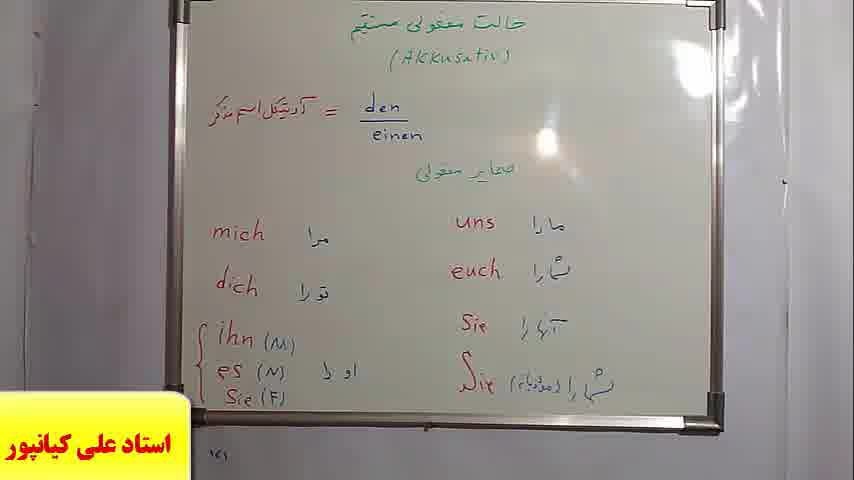 حالت مفعولی مستقیم
(Akkusativ)
آرتیکل اسم مذکر = den
einen
ضمایر مفعولی
mich مرا
dich تو را
ihn (M)
es (N) او را
Sie (F)
uns ما را
euch شما را
Sie آنها را
Sie شما را (مؤدبانه)
استاد علی کیانپور